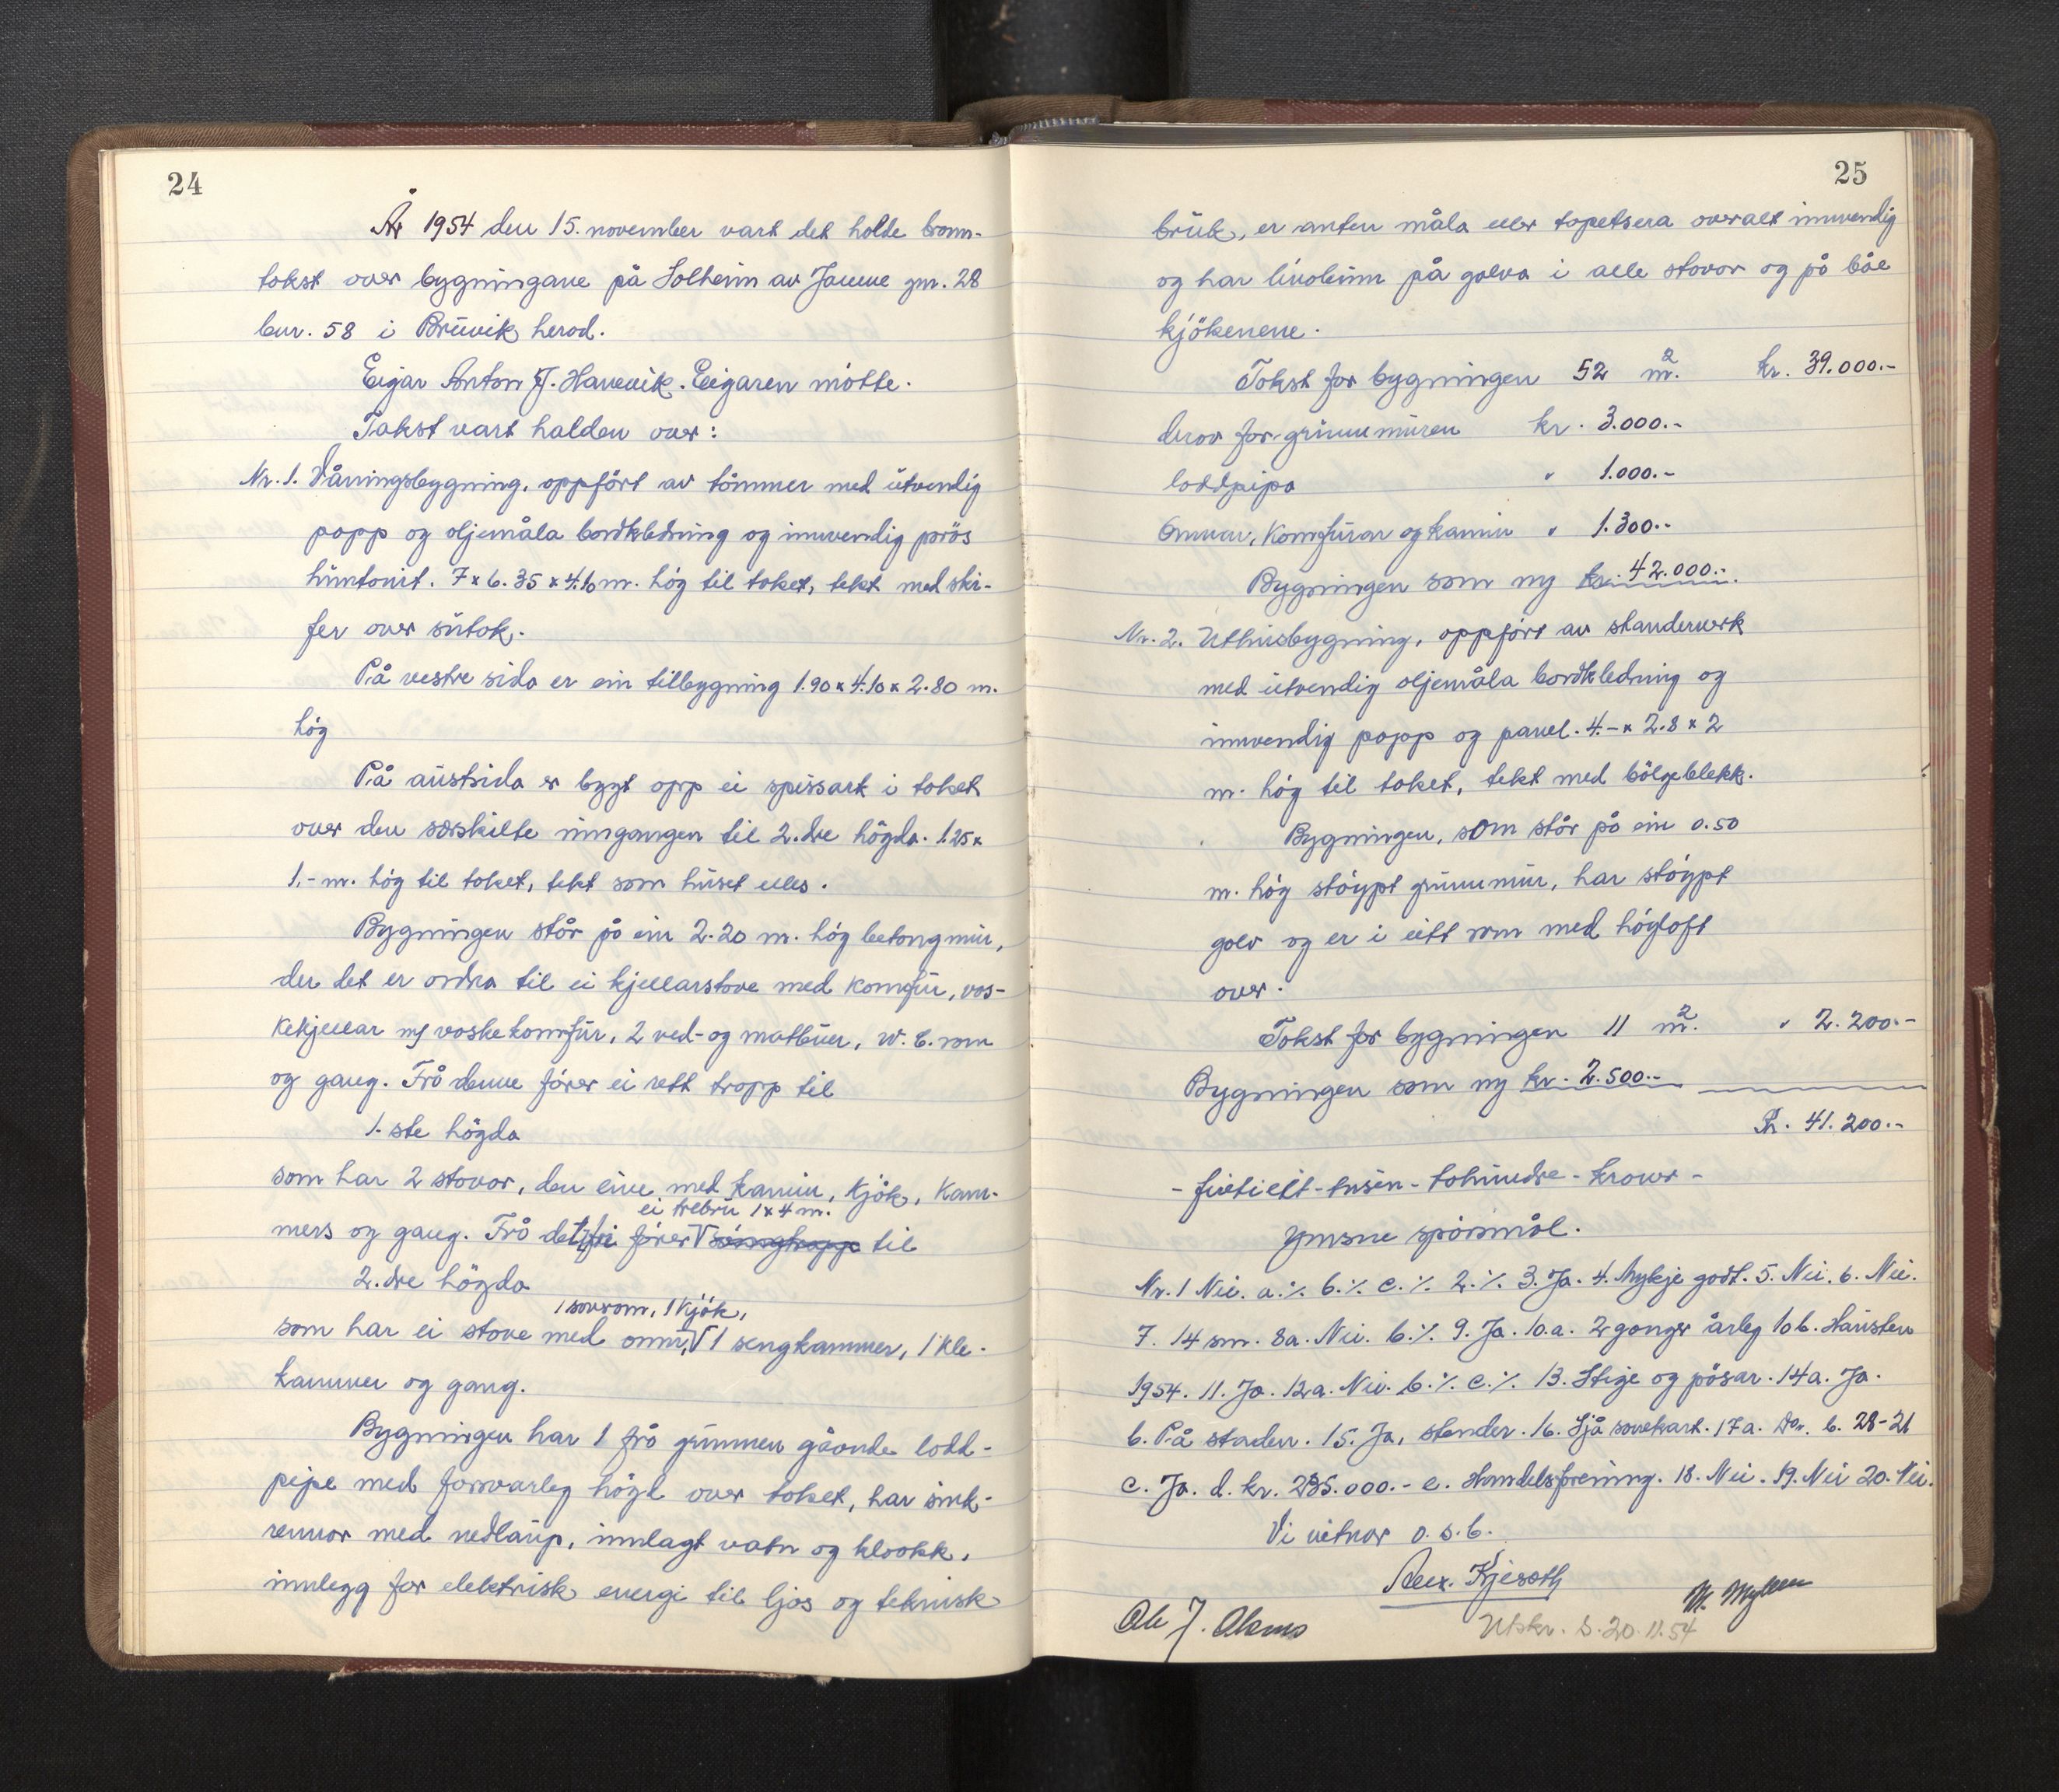 24
År 1954 den 15. november vart det holde brann-
takst over bygningane på Solheim av Janne gnr. 28
bnr. 58 i Bruvik herad.
Eigar Anton J. Hanevik. Eigaren møtte.
Takst vart halden over:
Nr. 1. Våningsbygning, oppført av tømmer med utvendig
papp og oljemåla bordkledning og innvendig porøs
huntonit. 7 x 6.35 x 4.10 m. høg til taket, tekt med ski-
fer over sutak.
På vestre sida er ein tilbygning 1.90 x 4.10 x 2.80 m.
høg
På austsida er bygt opp ei spissark i taket
over den særskilte inngangen til 2.dre høgda. 1.25 x
1.- m. høg til taket, tekt som huset elles.
Bygningen står på ein 2.20 m. høg betongmur,
der det er ordna til ei kjellarstove med komfur, vas-
kekjellar m/ vaskekomfur, 2 ved- og matbuer, W.C. rom
og gang. Frå denne fører ei rett tropp til
1. ste høgda
som har 2 stovor, den eine med kamin, kjøk, kam-
ei trebru 1 x 4 m.
mers og gang. Frå det fri fører V svingtropp til
2. dre høgda
1 soverom, 1 kjøk,
som har ei stove med omn, V 1 sengkammer, 1 kle-
kammer og gang.
Bygningen har 1 frå grunnen gåonde lodd-
pipe med forsvarleg høgd over taket, har sink-
rennor med nedlaup, innlagt vatn og kloakk,
innlegg for elektrisk energi til ljos og teknisk
25
bruk, er anten måla eller tapetsera overalt innvendig
og har linoleum på golva i alle stovor og på båe
kjøkenene.
Takst for bygningen 52 m.2 kr. 39.000.-
derav for grunnmuren kr. 3.000.-
loddpipa " 1.000.-
Omnar, komfurar og kamin " 1.300.-
Bygningen som ny kr. 42.000.-
Nr. 2. Uthusbygning, oppført av standerverk
med utvendig oljemåla bordkledning og
innvendig papp og panel. 4.- x 2.8 x 2
m. høg til taket, tekt med bølgeblekk.
Bygningen, som står på ein 0.50
m. høg støypt grunnmur, har støypt
golv og er i eitt rom med høgloft
over.
Takst for bygningen 11 m.2 " 2.200.-
Bygningen som ny kr. 2.500.-
Kr. 41.200.-
- firtieitt-tusen-tohundre-kroner -
Ymsne spørsmål.
Nr. 1 Nei. a. % b. % c. % 2. % 3. Ja. 4. Mykje godt. 5. Nei. 6. Nei.
7. 14 sm. 8a. Nei. b. % 9. Ja. 10.a. 2 gonger årleg 10b. Hausten
1954. 11. Ja. 12a. Nei. b. % c. % 13. Stige og pøsar. 14a. Ja.
b. På staden. 15. Ja, stender. 16. Sjå sonekart. 17a. Do. b. 28-21
c. Ja. d. kr. 235.000.- e. Handelsforening. 18. Nei. 19. Nei 20. Nei.
Vi vitnar o.s.b.
Alex. Kjesoth
Ole J. Olsnes M. Myhren
Utskr. s. 20.11.54